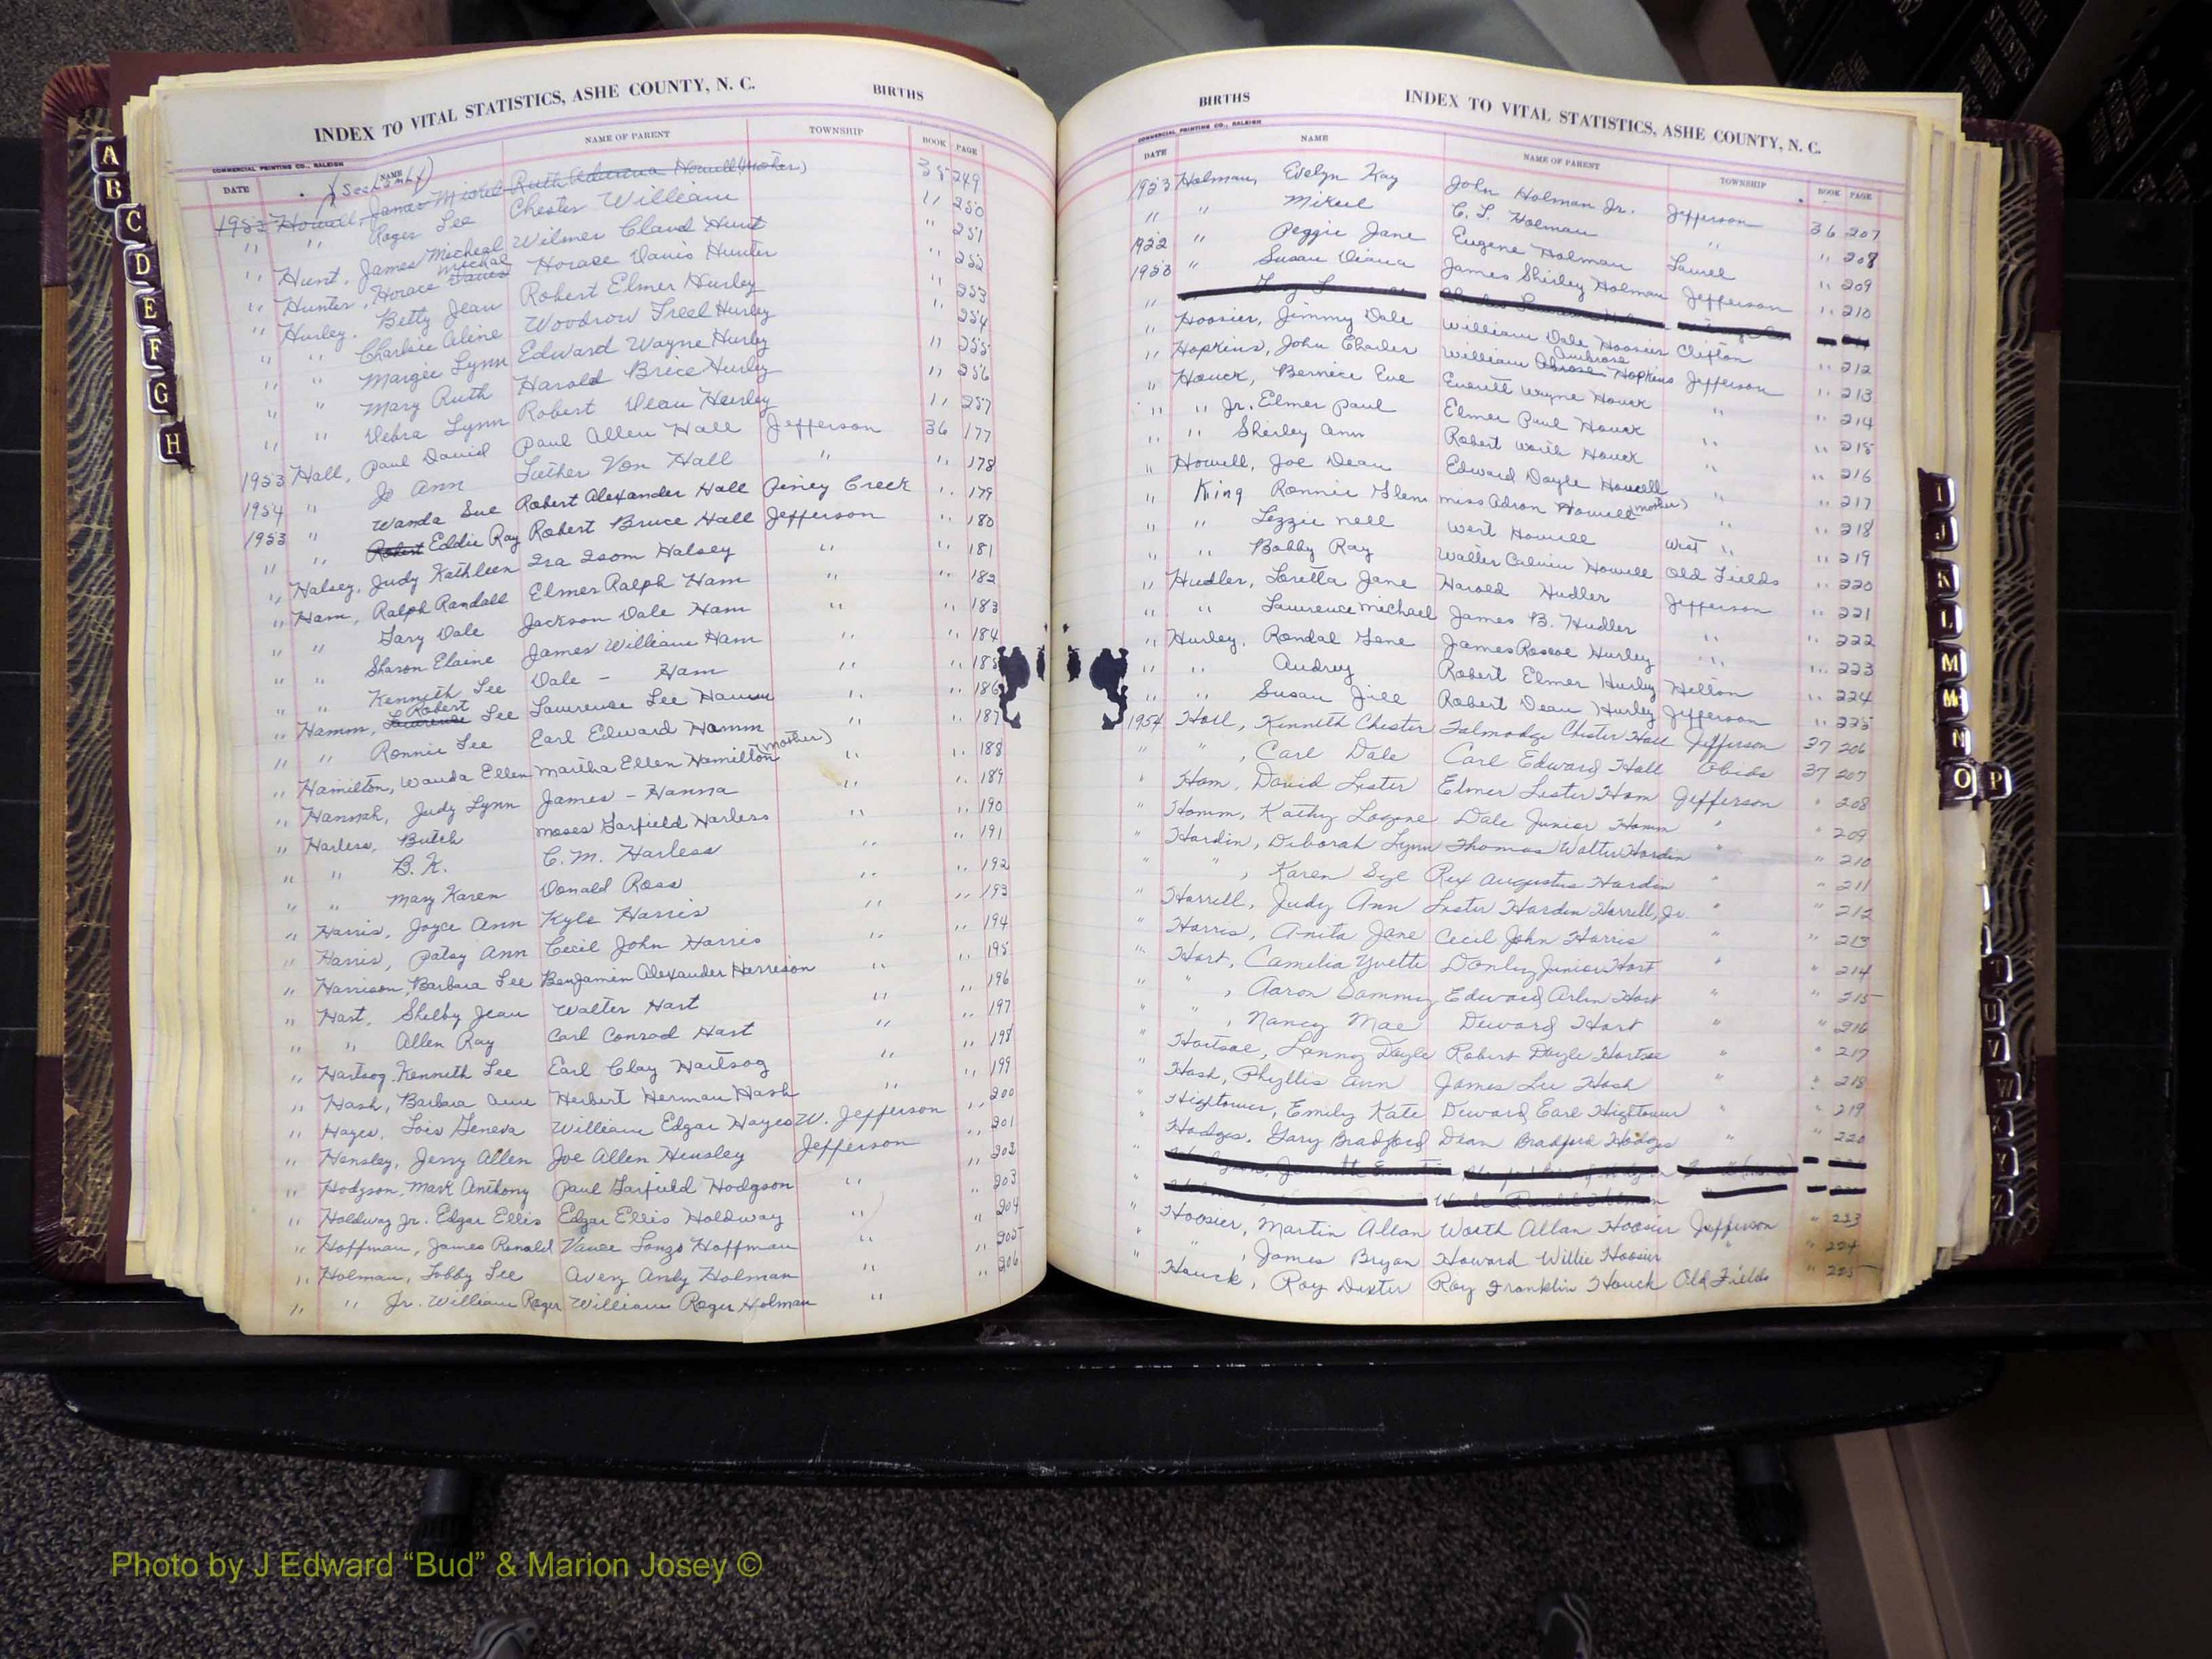 INDEX TO VITAL STATISTICS, ASHE COUNTY, N. C. BIRTHS
COMMERCIAL PRINTING CO., RALEIGH
DATE NAME NAME OF PARENT TOWNSHIP BOOK PAGE
1952 Howell, James Ruth Howell (mother) 35 249
" " Roger Lee Chester William 11 250
" Hunt, James Micheal Wilmer Claud Hunt " 251
" Hunter, Horace Michal Davis Horace Davis Hunter " 252
" Hurley, Betty Jean Robert Elmer Hurley " 253
" " Charlsie Aline Woodrow Freel Hurley " 254
" " Margie Lynn Edward Wayne Hurley 11 255
" " Mary Ruth Harold Brice Hurley 11 256
" " Debra Lynn Robert Dean Hurley 11 257
1953 Hall, Paul David Paul Allen Hall Jefferson 36 177
1954 " Jo Ann Luther Von Hall " " 178
1953 " Wanda Sue Robert Alexander Hall Piney Creek " 179
" " Robert Eddie Ray Robert Bruce Hall Jefferson " 180
" Halsey, Judy Kathleen Ira Isom Halsey " " 181
" Ham, Ralph Randall Elmer Ralph Ham " " 182
" " Gary Dale Jackson Dale Ham " " 183
" " Sharon Elaine James William Ham " " 184
" " Kenneth Lee Dale - Ham " " 185
" Hamm, Lawrence Robert Lee Lawrence Lee Hamm " " 186
" " Ronnie Lee Earl Edward Hamm " " 187
" Hamilton, Wanda Ellen Martha Ellen Hamilton (mother) " " 188
" Hannah, Judy Lynn James - Hanna " " 189
" Harless, Butch Moses Garfield Harless " " 190
" " B. K. C. M. Harless " " 191
" " Mary Karen Donald Ross " " 192
" Harris, Joyce Ann Kyle Harris " " 193
" Harris, Patsy Ann Cecil John Harris " " 194
" Harrison, Barbara Lee Benjamin Alexander Harrison " " 195
" Hart, Shelby Jean Walter Hart " " 196
" " Allen Ray Carl Conrad Hart " " 197
" Hartsog, Kenneth Lee Earl Clay Hartsog " " 198
" Hash, Barbara Anne Herbert Herman Hash " " 199
" Hayes, Lois Geneva William Edgar Hayes W. Jefferson " 200
" Hensley, Jerry Allen Joe Allen Hensley Jefferson " 201
" Hodgson, Mark Anthony Paul Garfield Hodgson " " 202
" Holdway Jr. Edgar Ellis Edgar Ellis Holdway " " 203
" Hoffman, James Ronald Vance Lonzo Hoffman " " 204
" Holman, Tobby Lee Avery Andy Holman " " 205
" " Jr. William Roger William Roger Holman " " 206
BIRTHS INDEX TO VITAL STATISTICS, ASHE COUNTY, N. C.
COMMERCIAL PRINTING CO., RALEIGH
DATE NAME NAME OF PARENT TOWNSHIP BOOK PAGE
1953 Holman, Evelyn Kay John Holman Jr. Jefferson 36 207
" " Mikul C. L. Holman " " 208
1952 " Peggie Jane Eugene Holman Laurel " 209
1953 " Susan Diana James Shirley Holman Jefferson " 210
" Hoosier, Jimmy Dale William Dale Hoosier Clifton " 212
" Hopkins, John Charles William Ambrose Hopkins Jefferson " 213
" Houck, Bernice Eve Everett Wayne Houck " " 214
" " Jr. Elmer Paul Elmer Paul Houck " 215
" " Sherley Ann Robert Worth Houck " " 216
" Howell, Joe Dean Edward Doyle Howell " " 217
" King Ronnie Glenn Miss Adron Howell (mother) " " 218
" " Lizzie Nell West Howell West " " 219
" " Bobby Ray Walter Calvin Howell Old Fields " 220
" Hudler, Loretta Jane Harold Hudler Jefferson " 221
" " Lawrence Michael James B. Hudler " " 222
" Hurley, Randal Gene James Roscoe Hurley " " 223
" " Audrey Robert Elmer Hurley Helton " 224
" " Susan Jill Robert Dean Hurley Jefferson " 225
1954 Hall, Kenneth Chester Talmadge Chester Hall Jefferson 37 206
" " , Carl Dale Carl Edward Hall Obids 37 207
" Ham, David Lester Elmer Lester Ham Jefferson " 208
" Hamm, Kathy Dale Junior Hamm " " 209
" Hardin, Deborah Lynn Thomas Walter Hardin " " 210
" " , Karen Rex Augustus Hardin " 211
" Harrell, Judy Ann Lester Hardin Harrell, Jr. " " 212
" Harris, Anita Jane Cecil John Harris " " 213
" Hart, Camelia Yvette Donley Junior Hart " " 214
" " , Aaron Sammy Edward Arlin Hart " " 215
" " , Nancy Mae Deward Hart " " 216
" Hartsoe, Lanny Doyle Robert Doyle Hartsoe " " 217
" Hash, Phyllis Ann James Lee Hash " " 218
" Hightower, Emily Kate Deward Earl Hightower " 219
" Hodges, Gary Bradford Dean Bradford Hodges " " 220
" Hoosier, Martin Allan Worth Allan Hoosier Jefferson " 223
" " , James Bryan Howard Willie Hoosier " " 224
" Houck, Roy Dexter Roy Franklin Houck Old Fields " 225
A
B
C
D
E
F
G
H
I
J
K
L
M
Mc
N
O P
T
U
V
W
X
Y
Z
VITAL STATISTICS BIRTHS
Photo by J Edward “Bud” & Marion Josey ©